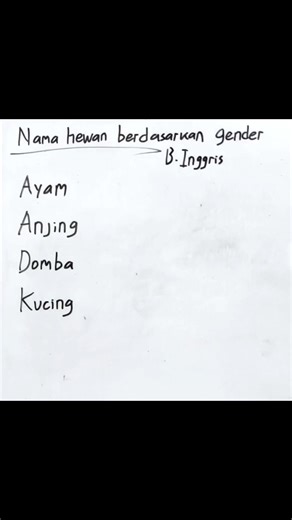 Nama hewan berdasarkan gender
B. Inggris
Ayam
Anjing
Domba
Kucing